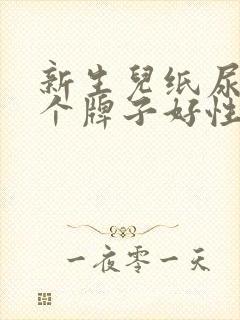 新生兒纸尿
个牌子好性
一夜零一天